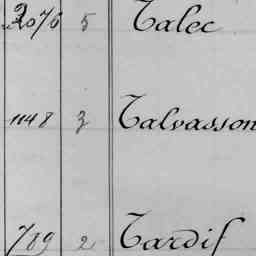 2076 5 Talec
1148 3 Talvasson
789 2 Tardif